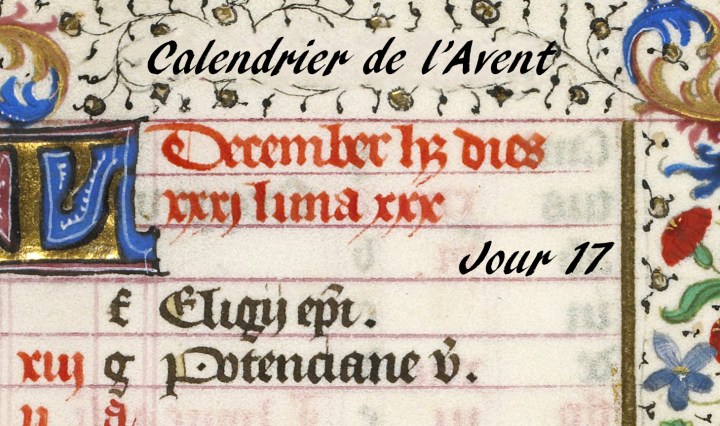 Calendrier de l'Avent
December hꝫ dies
xxxj luna xxx
Jour 17
f Eligij epi.
xiij g Potenciane v.
ii A